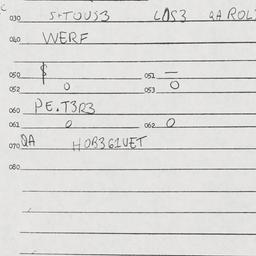 030 S+TOUS3 LAS3 QA ROL
040 WERF
050 $ 051 —
052 0 053 0
060 PE.T3R3
061 0 062 0
070 QA HOB3G1UET
080